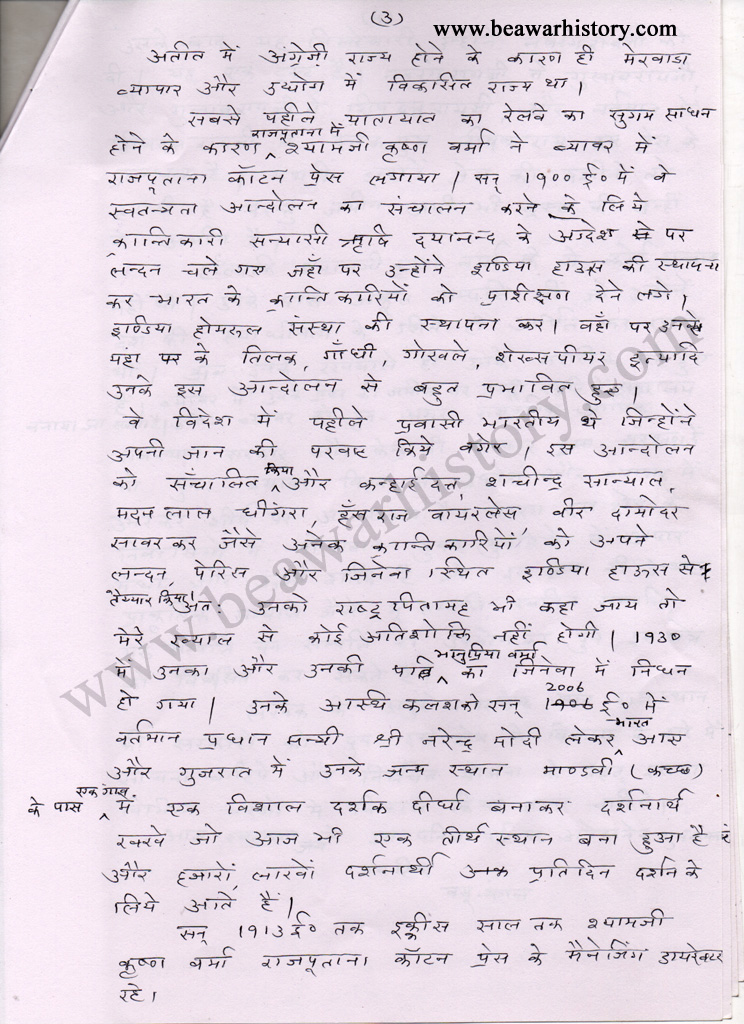 www.beawarhistory.com
(3)
अतीत में अंग्रेज़ी राज्य होने के कारण ही मेरवाड़ा
व्यापार और उद्योग में विकासित राज्य था।
सबसे पहीले यातायात का रेलवे का सुगम साधन
होने के कारण राजपूताना में श्यामजी कृष्ण वर्मा ने ब्यावर में
राजपूताना कॉटन प्रेस लगाया। सन् 1900 ई० में वे
स्वतन्त्रता आन्दोलन का संचालन करने के लिये
क्रान्तिकारी सन्यासी ऋषि दयानन्द के पर
लन्दन चले गए जहाँ पर उन्होंने इण्डिया हाउस की स्थापना
कर भारत के क्रान्तिकारियों को प्राशीक्षण देने लगे।
इण्डिया होमरूल संस्था की स्थापना कर। वहाँ पर उनसे
यहां पर के तिलक, गाँधी, गोखले, शेक्सपीयर इत्यादि
उनके इस आन्दोलन से बहुत प्रभावित हुए।
वे विदेश में पहीले प्रवासी भारतीय थे जिन्होंने
अपनी जान की परवाह किये बगैर। इस आन्दोलन
को संचालित किया और कन्हाई दत्त शचीन्द्र सान्याल,
मदन लाल धींगरा, हँसराज वायरलेस वीर दामोदर
सावरकर जैसे अनेक क्रान्तिकारियों को अपने
लन्दन, पेरिस और जिनेवा स्थित इण्डिया हाऊस से
तैय्यार किया। अतः उनको राष्ट्र पितामह भी कहा जाय तो
मेरे ख्याल से कोई अतिशोक्ति नहीं होगी। 1930
में उनका और उनकी पत्नि भानुप्रिया वर्मा का जिनेवा में निधन
हो गया। उनके अस्थि कलश को सन् 2006 ई० में
वर्तमान प्रधान मन्त्री श्री नरेन्द्र मोदी लेकर भारत आए
और गुजरात में उनके जन्म स्थान माण्डवी (कच्छ)
के पास एक गांव में एक विशाल दर्शक दीर्घा बनाकर दर्शनार्थ
रक्खे जो आज भी एक तीर्थ स्थान बना हुआ है
और हजारों लाखों दर्शनार्थी प्रतिदिन दर्शन के
लिये आते हैं।
सन् 1913 ई० तक इक्कीस साल तक श्यामजी
कृष्ण वर्मा राजपूताना कॉटन प्रेस के मैनेजिंग डायरेक्टर
रहे।
www.beawarhistory.com